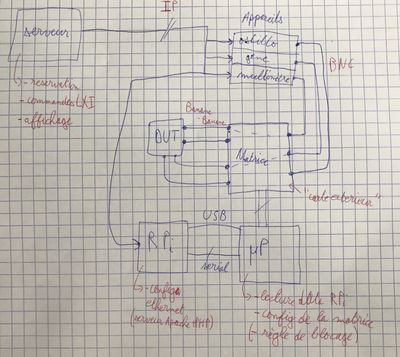 IP
Appareils
serveur
oscillo
géné
multimètre
BNC
- réservation
- commandes LXI
- affichage
Banane
- Banane
DUT
Matrice
"carte extérieur"
USB
RPi
serial
µP
- config
ethernet
(serveur Apache PHP)
- lecture de la RPi
- config de la matrice
(- règle de blocage)